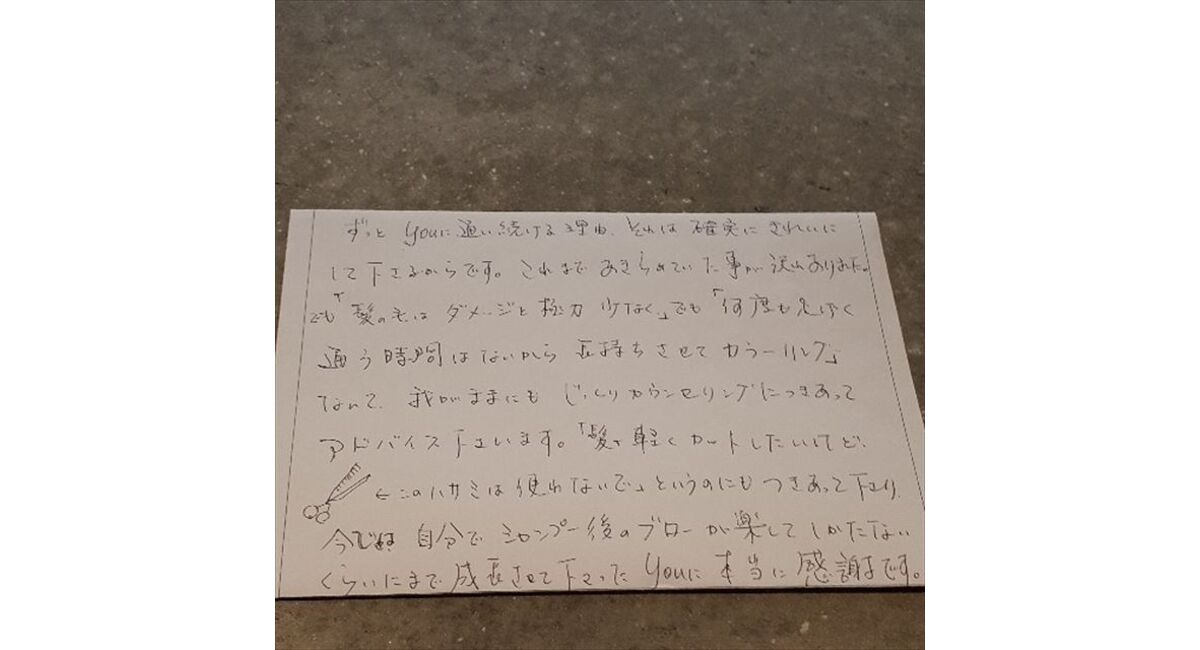 ずっと youに通い続ける理由、それは確実にきれいに
して下さるからです。これまであきらめていた事が沢山ありました。
でも「髪の毛はダメージを極力少なく」でも「何度も足しげく
通う時間はないから長持ちさせてカラーリング」
なんて、我がままにもじっくりカウンセリングにつきあって
アドバイス下さいます。「髪を軽くカットしたいけど、
←このハサミは使わないで」というのにもつきあって下さり、
今では 自分でシャンプー後のブローが楽してしかたない
くらいにまで成長させて下さった Youに本当に感謝です。